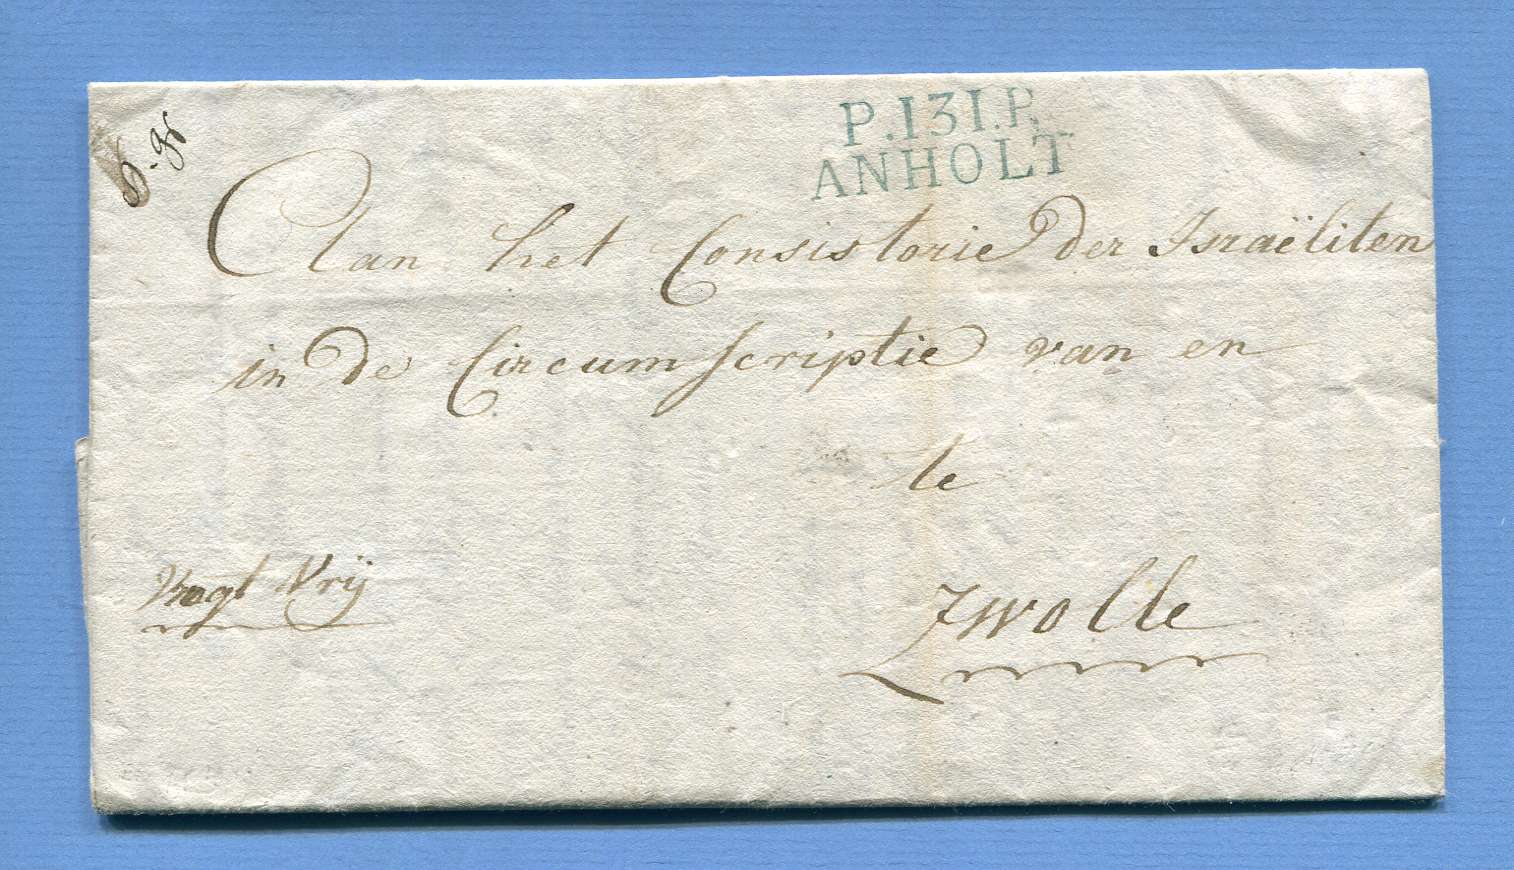 P.131.P.
ANHOLT
Aan het Consistorie der Israëliten
in de Circumscriptie van en
te
Zwolle
Vragt Vrij